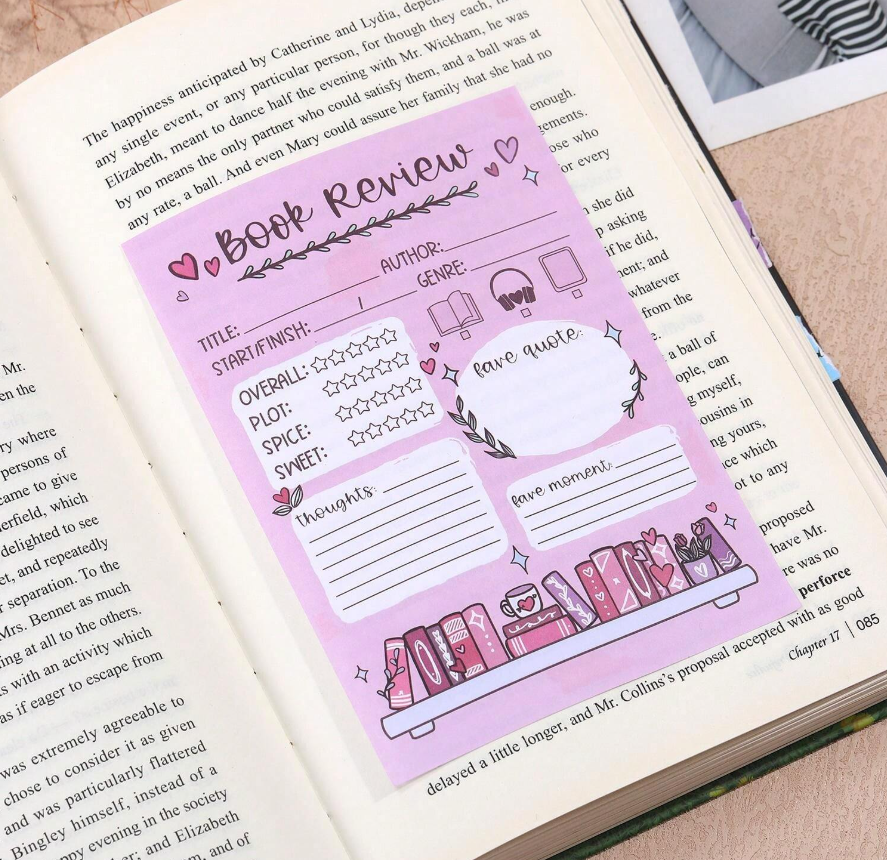 Mr.
en the
ry where
persons of
came to give
erfield, which
delighted to see
et, and repeatedly
r separation. To the
Mrs. Bennet as much
ing at all to the others.
s with an activity which
as if eager to escape from
was extremely agreeable to
chose to consider it as given
and was particularly flattered
Bingley himself, instead of a
ppy evening in the society
er; and Elizabeth
m, and of
The happiness anticipated by Catherine and Lydia, depe
any single event, or any particular person, for though they each,
Elizabeth, meant to dance half the evening with Mr. Wickham, he was
by no means the only partner who could satisfy them, and a ball was at
any rate, a ball. And even Mary could assure her family that she had no
enough.
gements.
ose who
or every
she did
p asking
if he did,
ment; and
whatever
from the
e.
a ball of
ople, can
g myself,
ousins in
ng yours,
ce which
ot to any
proposed
have Mr.
re was no
perforce
delayed a little longer, and Mr. Collins's proposal accepted with as good
Chapter 17 | 085
Book Review
TITLE: AUTHOR:
START/FINISH: / GENRE:
OVERALL:
PLOT:
SPICE:
SWEET:
fave quote:
thoughts:
fave moment: